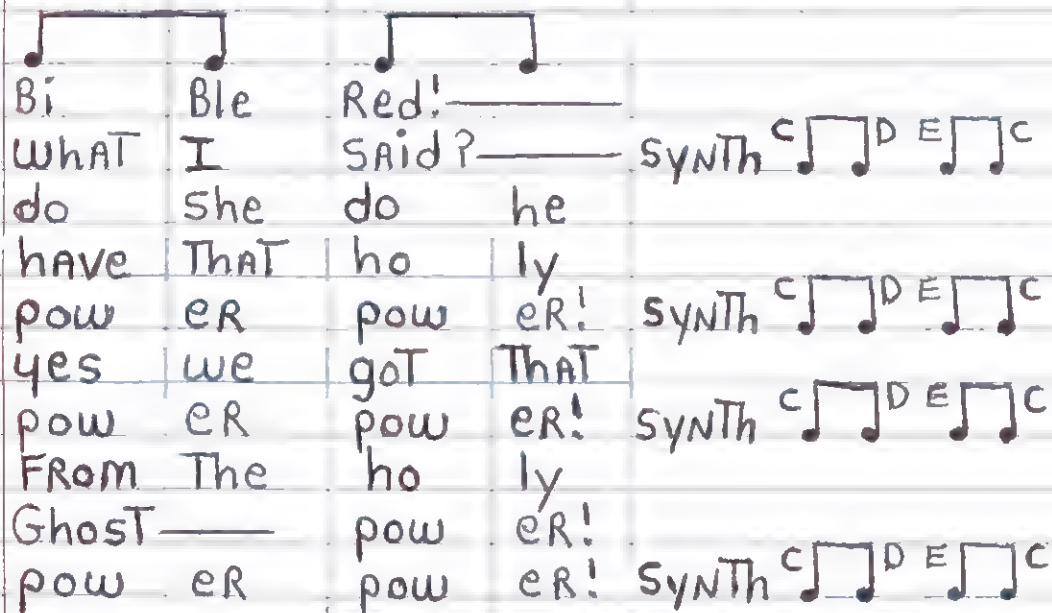 Bi Ble Red!
WhAT I SAid? SyNTh C D E C
do She do he
hAve ThAT ho ly
pow eR pow eR! SyNTh C D E C
yes we goT ThAT
pow eR pow eR! SyNTh C D E C
FRom The ho ly
GhosT pow eR!
pow eR pow eR! SyNTh C D E C